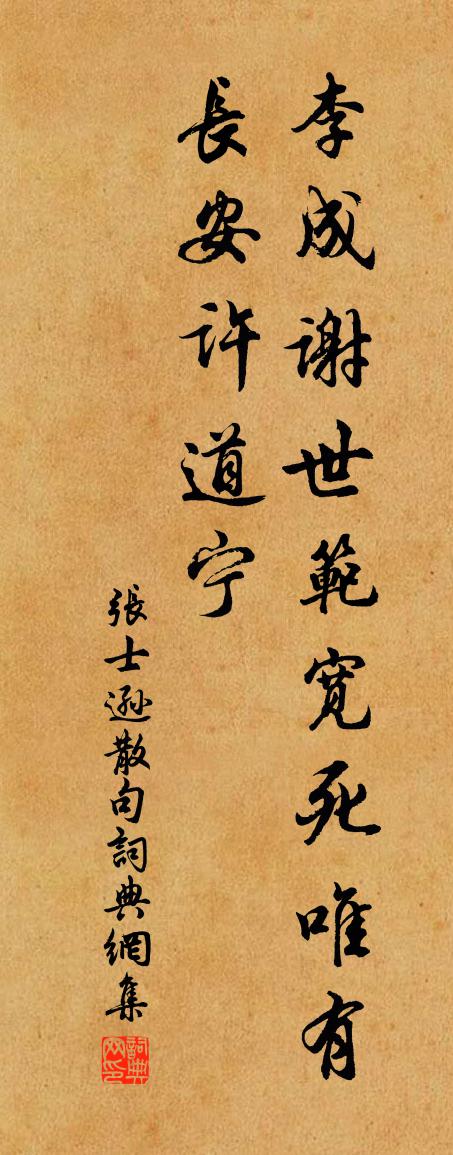 李成謝世範寬死唯有
長安許道宁
張士遜散句詞典網集
詞典网印